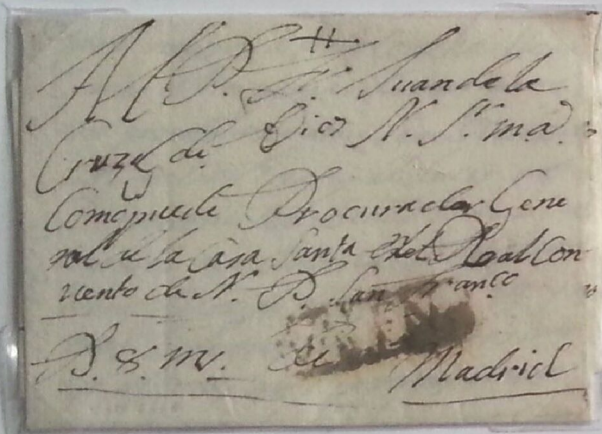 Al P. Fr. Juan de la
Cruz q. de Dios N. Sr. ma
Como puede Procurador Gene
ral de la Casa Santa en el Real Con
vento de N. P. San Franco
P. S. M. de Madrid